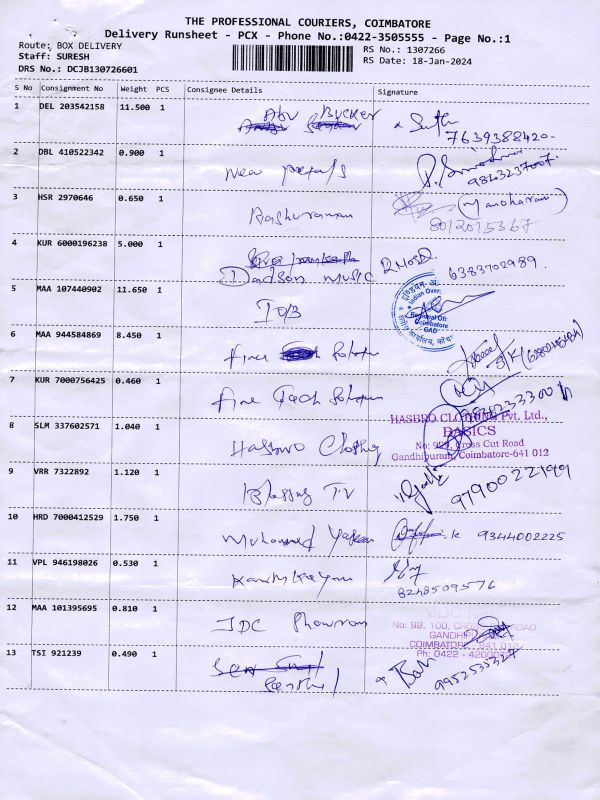 THE PROFESSIONAL COURIERS, COIMBATORE
Delivery Runsheet - PCX - Phone No.:0422-3505555 - Page No.:1
Route: BOX DELIVERY
Staff: SURESH
DRS No.: DCJB130726601
RS No.: 1307266
RS Date: 18-Jan-2024
S No Consignment No Weight PCS Consignee Details Signature
1 DEL 203542158 11.500 1
Abu Bucker
7639388420
2 DBL 410522342 0.900 1
New
3 HSR 2970646 0.650 1
Raghuraman (Manoharan)
8012015367
4 KUR 6000196238 5.000 1
Dadson Music
6383702989
5 MAA 107440902 11.650 1
IOB
Indian Over
Regional Off
Coimbatore
GAD
6 MAA 944584869 8.450 1
fine
7 KUR 7000756425 0.460 1
fine Tech
8 SLM 337602571 1.040 1
Hasbro Clothing
HASBRO CLOTHING Pvt. Ltd.,
BASICS
Cross Cut Road
Gandhipuram, Coimbatore-641 012
9 VRR 7322892 1.120 1
Blessing TV
9790022199
10 HRD 7000412529 1.750 1
Muhammed
9344002225
11 VPL 946198026 0.530 1
Karthikeyan
8248509576
12 MAA 101395695 0.810 1
JDC Showroom
No: 99, 100, CROSS ROAD
GANDHI
COIMBATORE - 641 012
Ph: 0422 -
13 TSI 921239 0.490 1
Senthil
9952535327